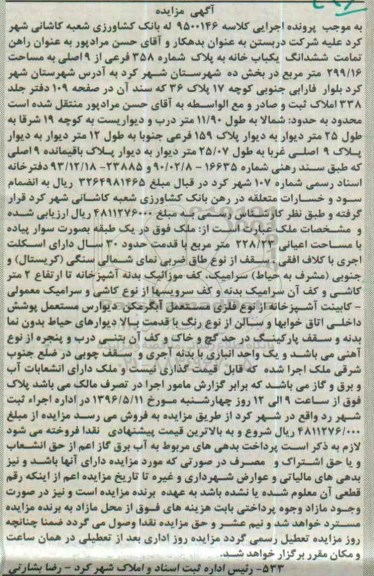 آگهی مزایده
به موجب پرونده اجرایی کلاسه ۹۵۰۰۱۴۶ له بانک کشاورزی شعبه کاشانی شهر
کرد علیه شرکت دربستن به عنوان بدهکار و آقای حسن مرادپور به عنوان راهن
تمامت ششدانگ یکباب خانه به پلاک شماره ۳۵۸ فرعی از ۹ اصلی به مساحت
۲۹۹/۱۶ متر مربع در بخش ده شهرستان شهر کرد به آدرس شهرستان شهر
کرد بلوار فارابی جنوبی کوچه ۱۷ پلاک ۳۶ که سند آن در صفحه ۱۰۹ دفتر جلد
۳۳۸ املاک ثبت و صادر و مع الواسطه به آقای حسن مرادپور منتقل شده است
محدود به حدود: شمالا به طول ۱۱/۹۰ متر درب و دیواریست به کوچه ۱۹ شرقا به
طول ۲۵ متر دیوار به دیوار پلاک ۱۵۹ فرعی جنوبا به طول ۱۲ متر دیوار به دیوار
پلاک ۹ اصلی غربا به طول ۲۵/۰۷ متر دیوار به دیوار پلاک باقیمانده ۹ اصلی
که طبق سند رهنی شماره ۱۶۶۳۵ - ۹۰/۰۲/۸ و ۲۳۸۸۵- ۹۳/۱۲/۱۸ دفترخانه
اسناد رسمی شماره ۱۰۷ شهر کرد در قبال مبلغ ۳۲۶۴۹۸۱۴۶۵ ریال به انضمام
سود و خسارات متعلقه در رهن بانک کشاورزی شعبه کاشانی شهر کرد قرار
گرفته و طبق نظر کارشناس رسمی به مبلغ ۴۸۱۱۳۷۶۰۰۰ ریال ارزیابی شده
و مشخصات ملک عبارتست از: ملک فوق در یک طبقه بصورت سوار پیاده
با مساحت اعیانی ۲۲۸/۲۲ متر مربع با قدمت حدود ۳۰ سال دارای اسکلت
اجری با کلاف افقی، سقف از نوع طاق ضربی نمای شمالی سنگی (کریستال) و
جنوبی (مشرف به حیاط) سرامیک، کف موزائیک بدنه آشپزخانه تا ارتفاع ۲ متر
کاشی و کف آن سرامیک بدنه و کف سرویسها از نوع کاشی و سرامیک معمولی
- کابینت آشپزخانه از نوع فلزی مستعمل آبگرمکن دیوارس مستعمل پوشش
داخلی اتاق خوابها و سالن از نوع رنگ با قدمت بالا دیوارهای حیاط بدون نما
بدنه و سقف پارکینگ در حد گچ و خاک و کف آن بتنی درب و پنجره از نوع
آهنی می باشد و یک واحد انباری با بدنه آجری و سقف چوبی در ضلع جنوب
شرقی ملک اجرا شده که قابل قیمت گذاری نیست و ملک دارای انشعابات آب
و برق و گاز می باشد که برابر گزارش مامور اجرا در تصرف مالک می باشد پلاک
فوق از ساعت ۹ الی ۱۲ روز چهارشنبه مورخ ۱۳۹۶/۵/۱۱ در اداره اجراء ثبت
شهر رد واقع در شهر کرد از طریق مزایده به فروش می رسد مزایده از مبلغ
۴۸۱۱۳۷۶/۰۰۰ ریال شروع و به بالاترین قیمت پیشنهادی نقدا فروخته می شود
لازم به ذکر است پرداخت بدهی های مربوط به آب برق گاز اعم از حق انشعاب
و یا حق اشتراک و مصرف در صورتی که مورد مزایده دارای آنها باشد و نیز
بدهی های مالیاتی و عوارض شهرداری و غیره تا تاریخ مزایده اعم از اینکه رقم
قطعی آن معلوم شده یا نشده باشد به عهده برنده مزایده است و نیز در صورت
وجود مازاد وجوه پرداختی بابت هزینه های فوق از محل مازاد به برنده مزایده
مسترد خواهد شد و نیم عشر و حق مزایده نقدا وصول می گردد ضمنا چنانچه
روز مزایده تعطیل رسمی گردد مزایده روز اداری بعد از تعطیلی در همان ساعت
و مکان مقرر برگزار خواهد شد.
۵۳۳- رئیس اداره ثبت اسناد و املاک شهر کرد - رضا بشارتی